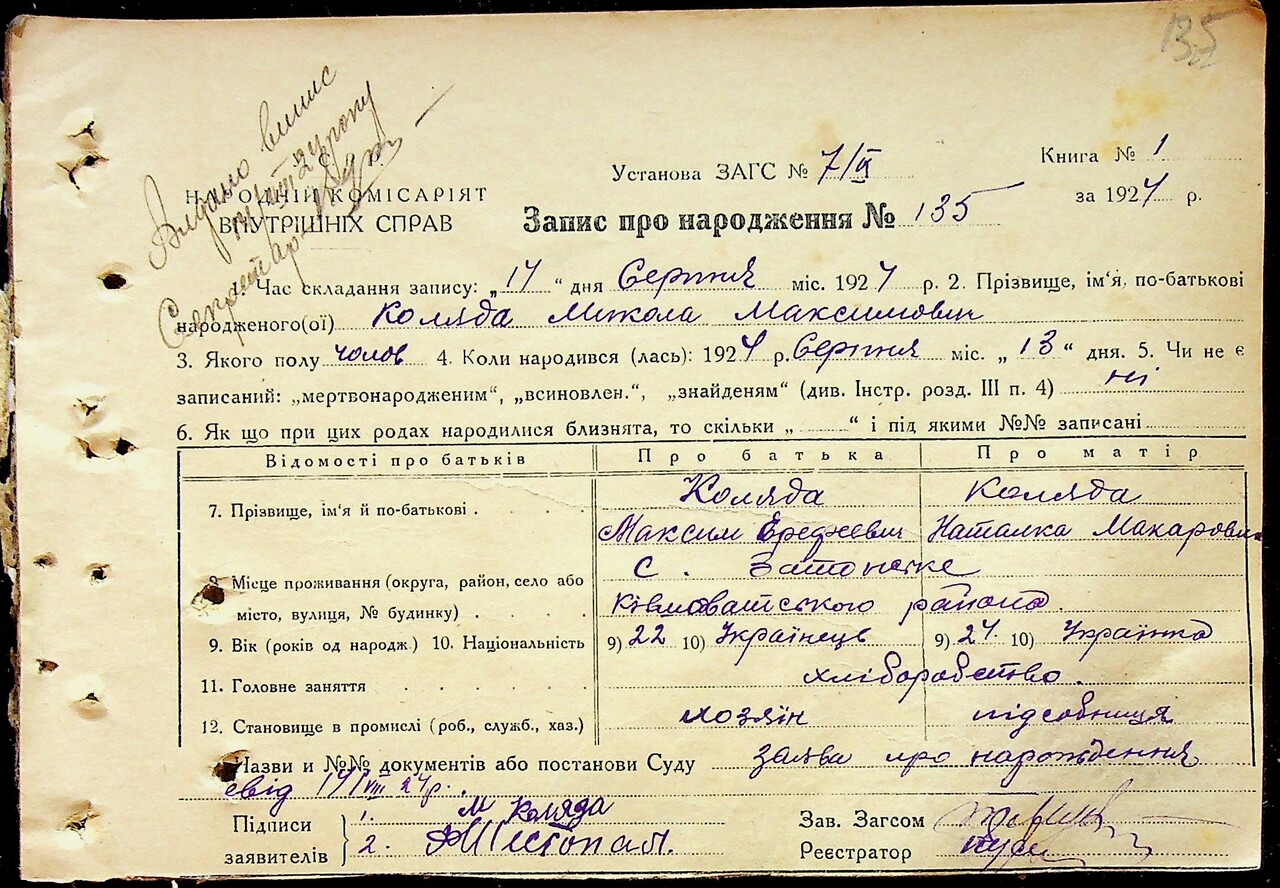 135
Видано випис
Секретар
Установа ЗАГС № 7/ІХ
Книга № 1
за 1924 р.
НАРОДНІЙ КОМІСАРІЯТ
ВНУТРІШНІХ СПРАВ
Запис про народження № 135
1. Час складання запису: „17“ дня Серпня міс. 1924 р. 2. Прізвище, ім'я, по-батькові
народженого(ої) Коляда Микола Максимович
3. Якого полу чолов 4. Коли народився (лась): 1924 р. Серпня міс. „13“ дня. 5. Чи не є
записаний: „мертвонародженим“, „всиновлен.“, „знайденям“ (див. Інстр. розд. III п. 4) ні
6. Як що при цих родах народилися близнята, то скільки „ “ і під якими №№ записані
Відомості про батьків Про батька Про матір
7. Прізвище, ім'я й по-батькові . Коляда Коляда
Максим Наталка Макаровн
8. Місце проживання (округа, район, село або с. Затонське
місто, вулиця, № будинку) . района.
9. Вік (років од народж.) 10. Національність 9) 22 10) Українець 9) 24 10) Українка
11. Головне заняття хліборобство.
12. Становище в промислі (роб., служб., хаз.) хозяїн підсобниця
Назви и №№ документів або постанови Суду заява про народження
24 р.
Підписи заявителів
1. М Коляда
2.
Зав. Загсом
Реєстратор